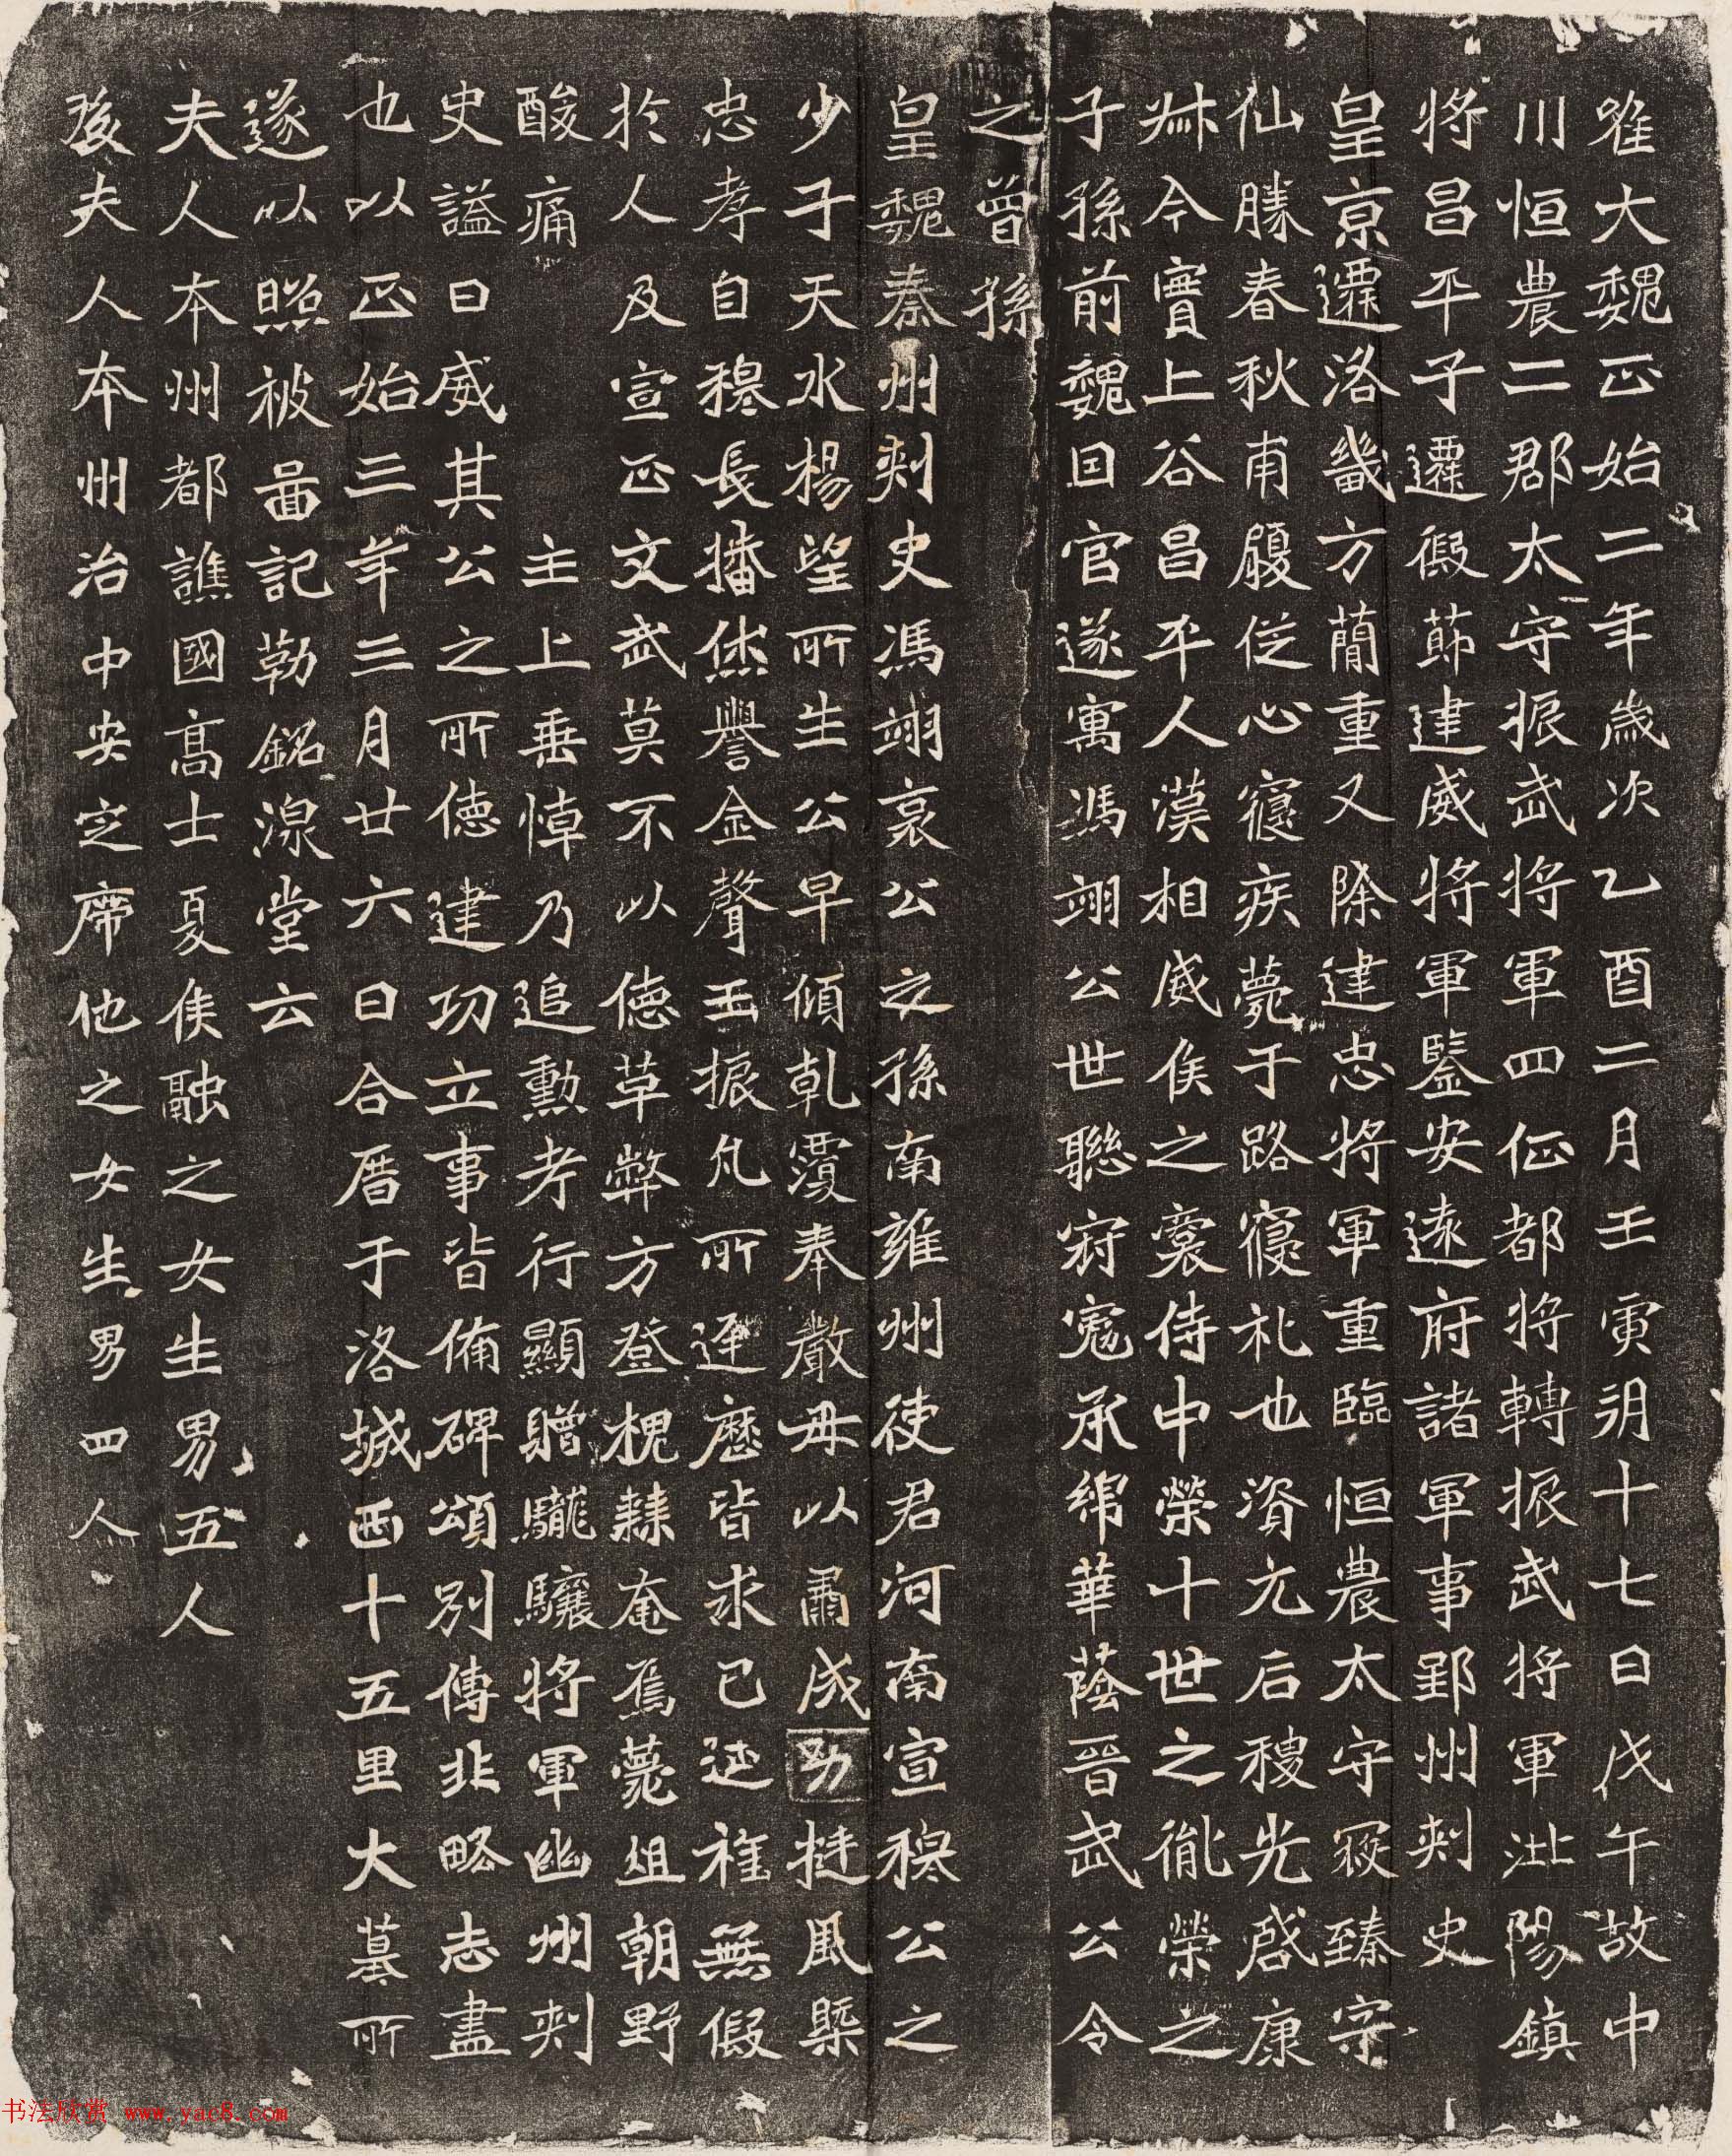 唯大魏正始二年歲次乙酉二月壬寅朔十七日戊午故中
川恒農二郡太守振武將軍四征都將轉振武將軍沘陽鎮
將昌平子遷假節建威將軍鑒安遠府諸軍事郢州刾史
皇京遷洛畿方蕑重又除建忠將軍重臨恒農太守寂臻守
仙勝春秋甫履從心寢疾薨于路寢礼也資元后稷光啓康
叔今實上谷昌平人漢相威侯之裔侍中榮十世之胤榮之
子孫前魏因官遂寓馮翊公世聯冠冕承綿華蔭晉武公令
之曾孫
皇魏秦州刾史馮翊哀公之孫南雍州使君河南宣穆公之
少子天水楊望所生公早傾乾覆奉嚴毋以肅成幼挺風槩
忠孝自穆長播休譽金聲玉振凡所逕歷皆求已延祚無假
於人及宣正文武莫不以德草弊方登槐棘奄焉薨徂朝野
酸痛主上垂悼乃追勳考行顯贈驣驤將軍幽州刾
史謚曰威其公之所德建功立事皆俻碑頌別傳非略志盡
也以正始三年三月廿六日合厝于洛城西十五里大墓所
遂以照被啚記勒銘湶堂云
夫人本州都譙國高士夏侯融之女生男五人
後夫人本州治中安定席他之女生男四人
书法欣赏 www.yac8.com